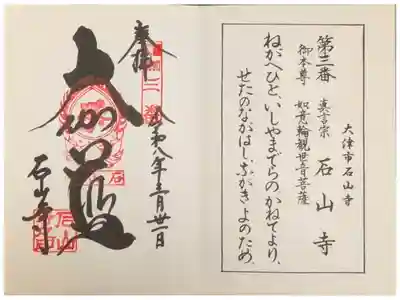 大津市石山寺
第三番 真言宗 石山寺
御本尊 如意輪観世音菩薩
ねがへひと、いしやまでらのかねてより、
せたのながはし、ながきよのため。
奉拝
令和八年三月廿一日
大伽藍
石山寺